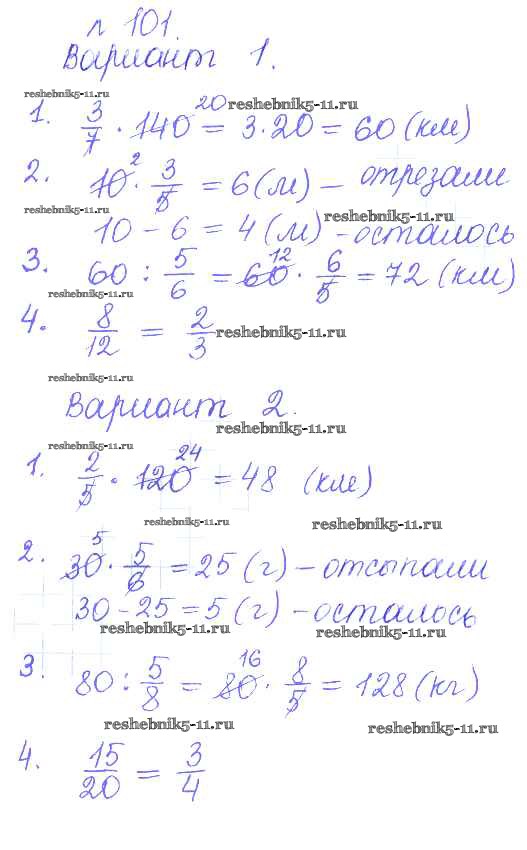 п 101.
Вариант 1.
reshebnik5-11.ru
1. 3/7 · 140 20 = 3·20 = 60 (км)
reshebnik5-11.ru
2. 10 2 · 3/5 = 6 (м) – отрезали
reshebnik5-11.ru
reshebnik5-11.ru
10 – 6 = 4 (м) – осталось
3. 60 : 5/6 = 60 12 · 6/5 = 72 (км)
reshebnik5-11.ru
4. 8/12 = 2/3
reshebnik5-11.ru
reshebnik5-11.ru
Вариант 2.
reshebnik5-11.ru
reshebnik5-11.ru
1. 2/5 · 120 24 = 48 (км)
reshebnik5-11.ru
reshebnik5-11.ru
2. 30 5 · 5/6 = 25 (г) – отсыпали
30 – 25 = 5 (г) – осталось
reshebnik5-11.ru
reshebnik5-11.ru
3. 80 : 5/8 = 80 16 · 8/5 = 128 (кг)
reshebnik5-11.ru
reshebnik5-11.ru
4. 15/20 = 3/4